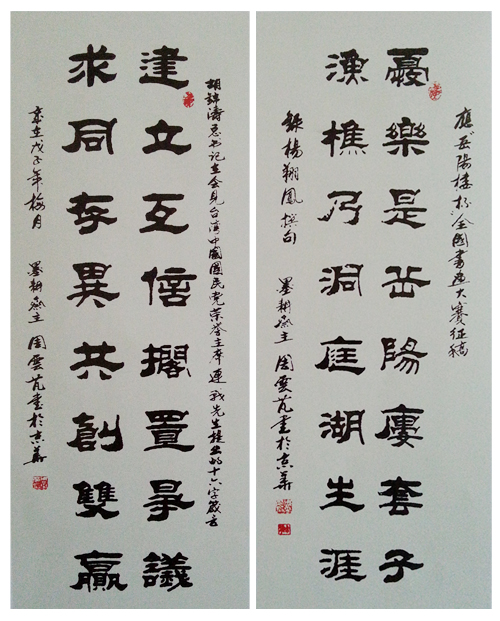 應岳陽樓杯全國書道大賽征稿
憂樂是岳陽廔套子
漁樵乃洞庭湖生涯
錄楊翔鳳撰句 墨耕齋主 周雲芃書於京華
胡錦濤总书记在会见台湾中國國民党荣誉主席連战先生提出的十六字箴言
建立互信擱置爭議
求同存異共創雙贏
岁在戊子年梅月 墨耕齋主 周雲芃書於京華